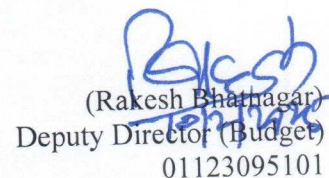 Rakesh
(Rakesh Bhatnagar)
Deputy Director (Budget)
01123095101